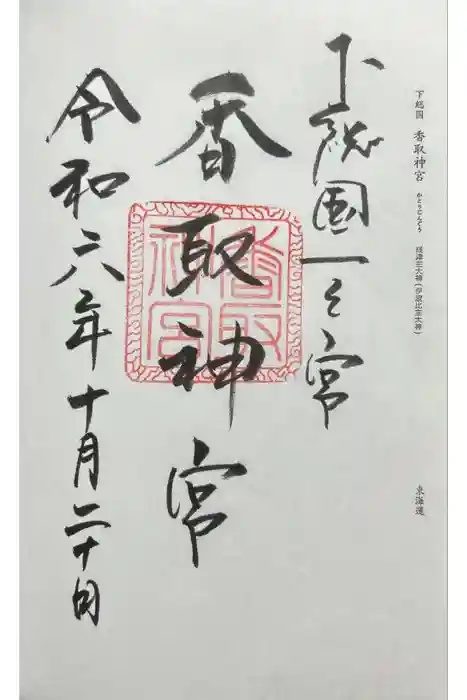 下総国 香取神宮 かとりじんぐう 経津主大神(伊波比主大神)
東海道
下総國一之宮
香取神宮
令和六年十月二十日
香取神宮